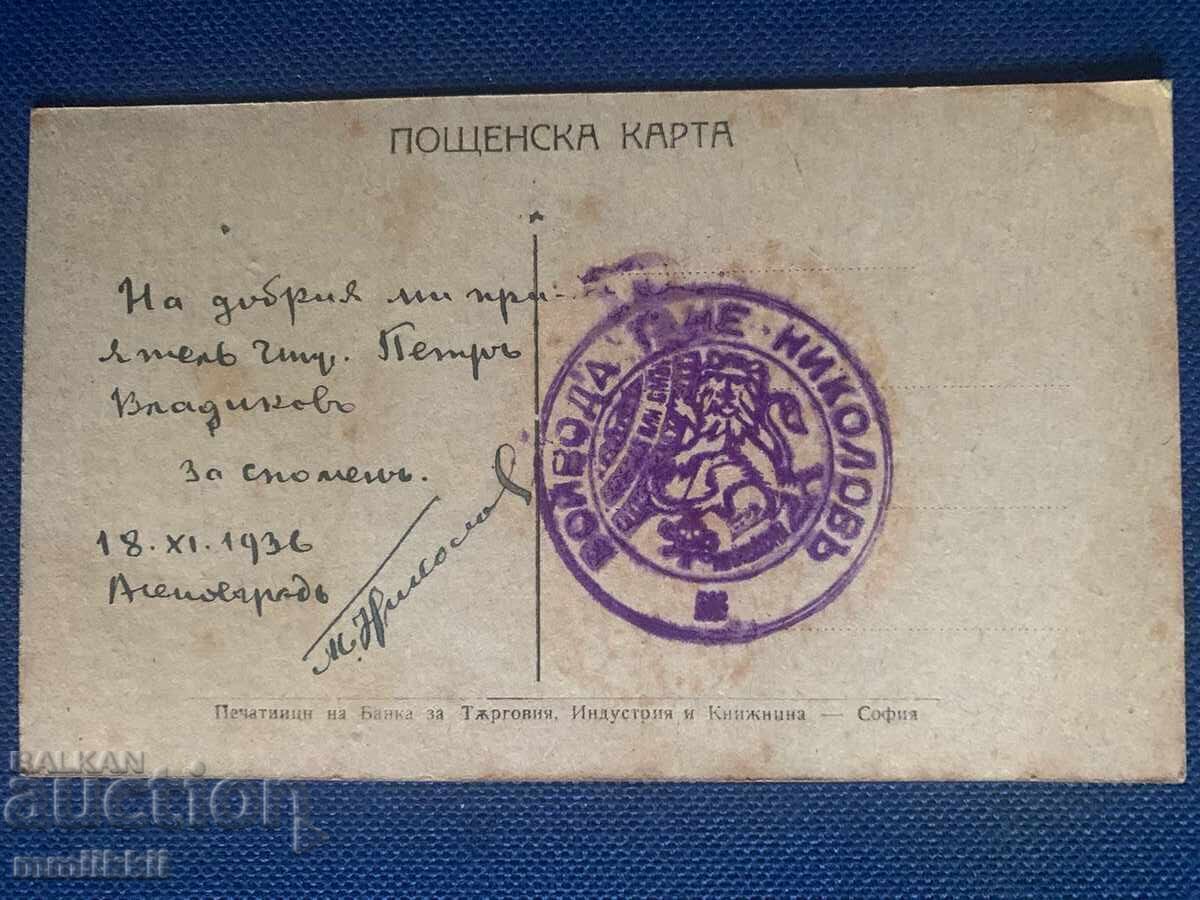 ПОЩЕНСКА КАРТА
На добрия ми при-
ятель Петръ
Владиковъ
За споменъ.
18.XI.1936
Асеновградъ
М. Николов
ВОЙВОДА ТАНЕ НИКОЛОВЪ
Печатници на Банка за Тѫрговия, Индустрия и Книжнина — София
BALKAN
auction
mmiikkii